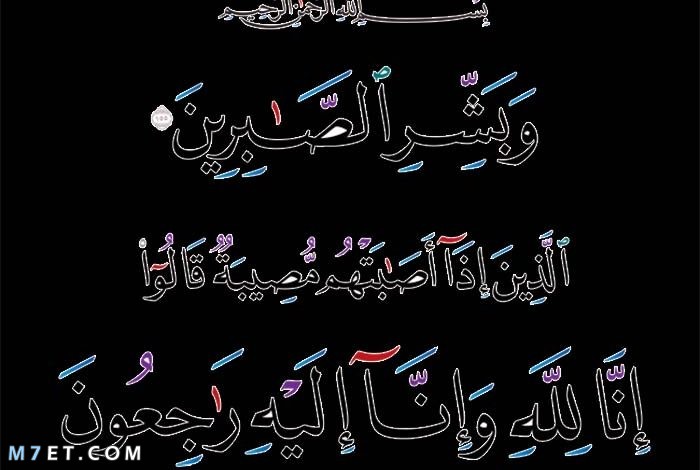 بِسْمِ اللَّهِ الرَّحْمَٰنِ الرَّحِيمِ
وَبَشِّرِ ٱلصَّٰبِرِينَ ١٥٥
ٱلَّذِينَ إِذَآ أَصَٰبَتْهُم مُّصِيبَةٌ قَالُوٓا۟
إِنَّا لِلَّهِ وَإِنَّآ إِلَيْهِ رَٰجِعُونَ
M7ET.COM